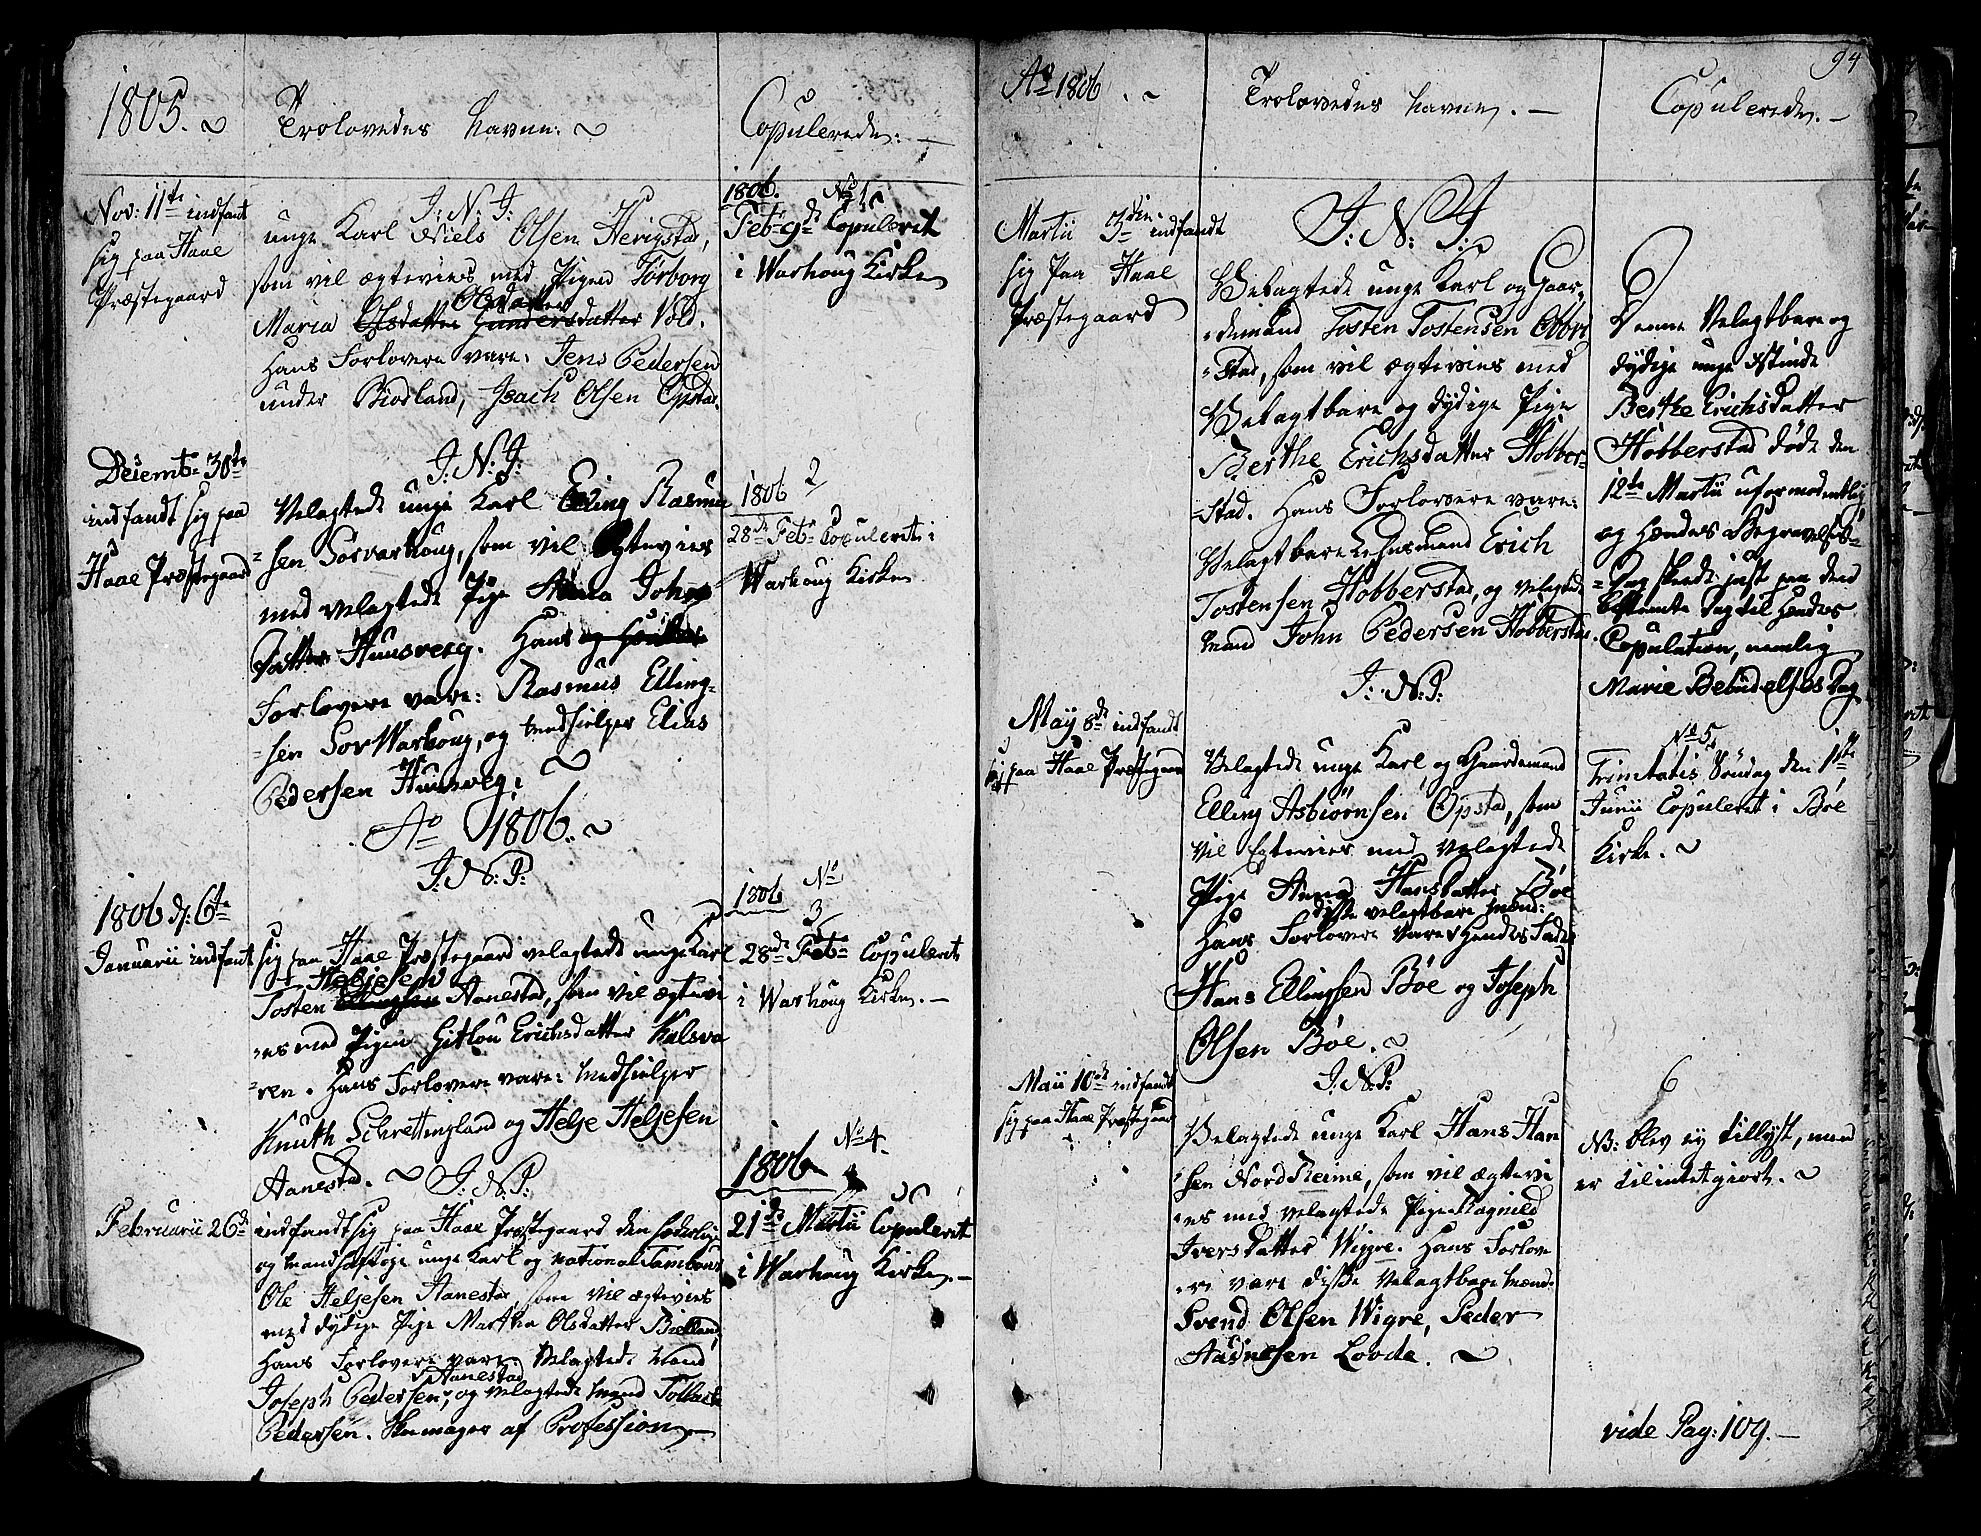 1805.
Trolovedes Navne:
Copulerede:
Nov: 11te indfant
sig paa Haae
Præstegaard
J: N: J:
unge Karl Niels Olsen Herigstad,
som vil ægtevies med Pigen Torborg
Maria Olsdatter Gundersdatter Vold.
Hans Forlovere vare: Jens Pedersen
under Biodland, Isach Olsen Opstad.
1806. No 1
Feb: 9de Copuleret
i Warhoug Kirke
Decemb: 30te
indfandt sig paa
Haae Præstegaard
J: N: J:
Velagtede unge Karl Elling Rasmu
sen Sørvarhoug, som vil Ægtevies
med velagtede Pige Anna Johns
Datter Huusveg. Hans og Hendes
Forlovere vare: Rasmus Elling-
sen SørWarhoug, og Medhielper Elias
Pedersen Huusveg.
1806 2
28de Feb: Copuleret i
Warhoug Kirke
Ao 1806.
J: N: J:
1806 d: 6te
Januarii indfant
sig paa Haae Præstegaard velagtede unge Karl
Heljesen
Tosten Ellingsen Aanestad, som vil ægtevi
es med Pigen Gitlou Erichsdatter Kalsva
ren. Hans Forlovere vare: Medhielper
Knuth Schrettingland og Helje Heljesen
Aanestad.
1806 No
3
28de Feb: Copuleret
i Warhoug Kirke.
J: N: J:
Februarii 26de
indfandt sig paa Haae Præstegaard den hæderlige
og mandhaftige unge Karl og National Tambour
Ole Heljesen Aanestad som vil ægtevies
med dydige Pige Martha Olsdatter Bielland,
Hans Forlovere vare Velagtede Mand
Aanestad
Joseph Pedersen, og velagtede Mand Tolleiv
Pedersen. Skomager af Profession
No 4.
1806
21de Martii Copuleret
i Warhoug Kirke.
94
Ao 1806.
Trolovedes Navne.
Copulerede.
Martii 3die indfandt
sig paa Haae
Præstegaard
J: N: J:
Velagtede unge Karl og Gaar-
demand Tosten Tostensen Obbre
stad, som vil ægtevies med
Velagtbare og dydige Pige
Berthe Erichsdatter Hobber-
stad. Hans Forlovere vare:
Velagtbare Lehnsmand Erich
Tostensen Hobberstad, og velagtede
Mand John Pedersen Hobberstad.
Denne Velagtbare og
dydige unge Qvinde
Berthe Erichsdatter
Hobberstad døde den
12te Martii uformodentlig,
og hendes Begravelses-
Dag skeede just paa den
bestemte Dag til hendes
Copulation, nemlig
Marie Bebudelses Dag
J: N: J:
May 8de indfandt
sig paa Haae Præstegaard
Velagtede unge Karl og Gaardemand
Elling Asbiørnsen Opstad, som
vil Egtevies med velagtede
Pige Anna Hansdatter Bøe
disse velagtbare Mænd:
Hans Forlovere vare Hendes Fader
Hans Ellingsen Bøe og Joseph
Olsen Bøe.
No 5
Trinitatis Søndag den 1te
Junii Copuleret i Bøe
Kirke.
J: N: J:
Maii 10de indfandt
sig paa Haae Præstegaard
Velagtede unge Karl Hans Han
sen NordReime, som vil ægtevi
es med velagtede Pige Ragnild
Iversdatter Wigre. Hans Forlove
re vare disse Velagtbare Mænd
Svend Olsen Wigre, Peder
Aadnesen Lovde.
6
NB: blev ey tillyst, men
er tilintetgiort.
vide Pag: 109.